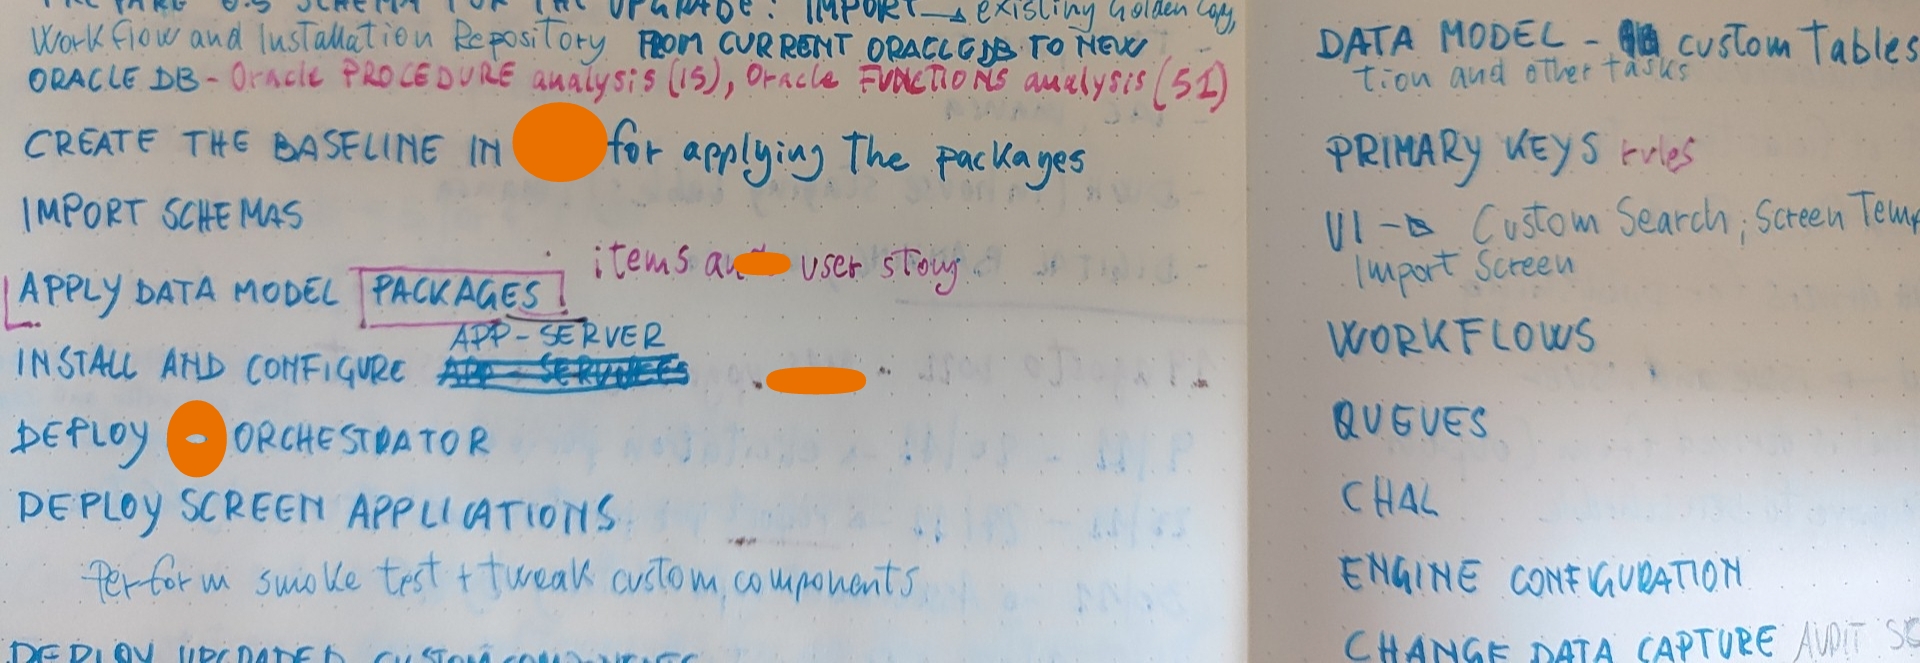 PREPARE 8.5 SCHEMA FOR THE UPGRADE: IMPORT → existing Golden Copy,
Workflow and Installation Repository FROM CURRENT ORACLE DB TO NEW
ORACLE DB - Oracle PROCEDURE analysis (15), Oracle FUNCTIONS analysis (51)
CREATE THE BASELINE IN for applying The packages
IMPORT SCHEMAS
items user story
APPLY DATA MODEL PACKAGES
APP-SERVER
INSTALL AND CONFIGURE
DEPLOY ORCHESTRATOR
DEPLOY SCREEN APPLICATIONS
Perform smoke test + tweak custom components
DEPLOY UPGRADED CUSTOM COMPONENTS
DATA MODEL - custom Tables
tion and other tasks
PRIMARY KEYS rules
UI → Custom Search; Screen Temp
Import Screen
WORKFLOWS
QUEUES
CHAL
ENGINE CONFIGURATION
CHANGE DATA CAPTURE AUDIT